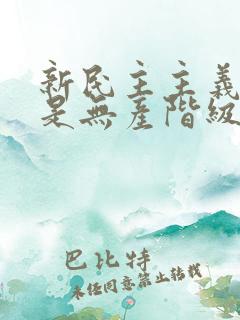 新民主主義
是無產階級
巴比特
未經同意禁止轉載